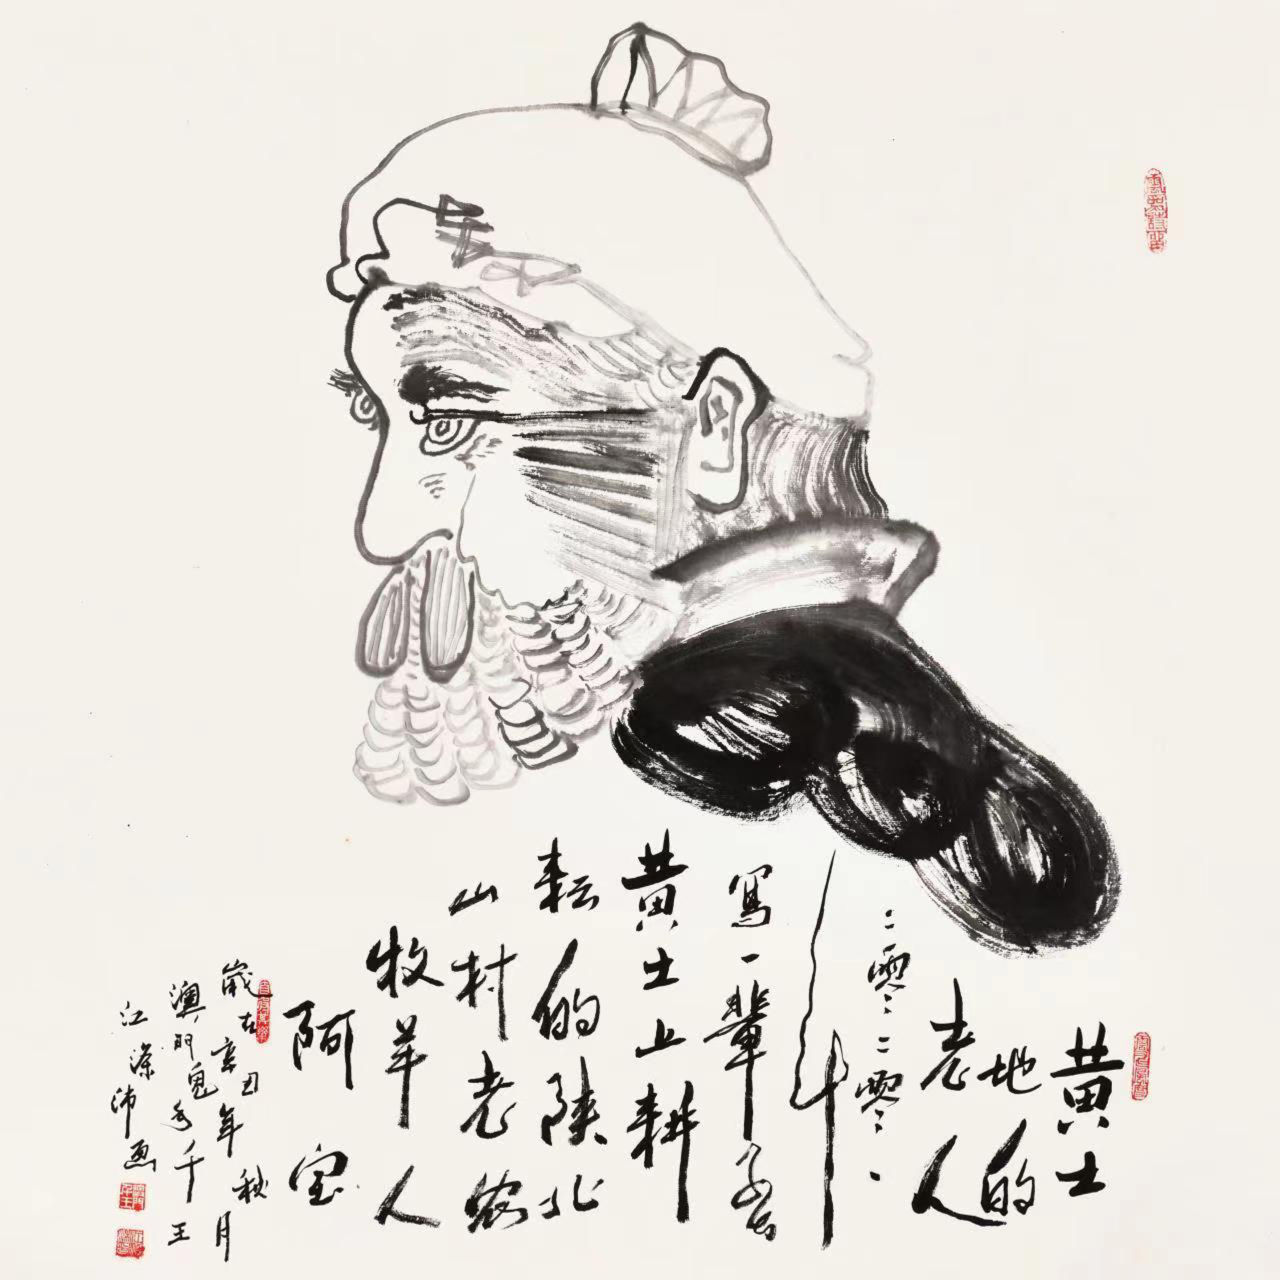 黄土
地的
老人
二零二零
寫一輩子在
黄土上耕
耘的陕北
山村老农
牧羊人
阿宝
歲在辛丑年秋月
澳门鬼手千王
江沛画